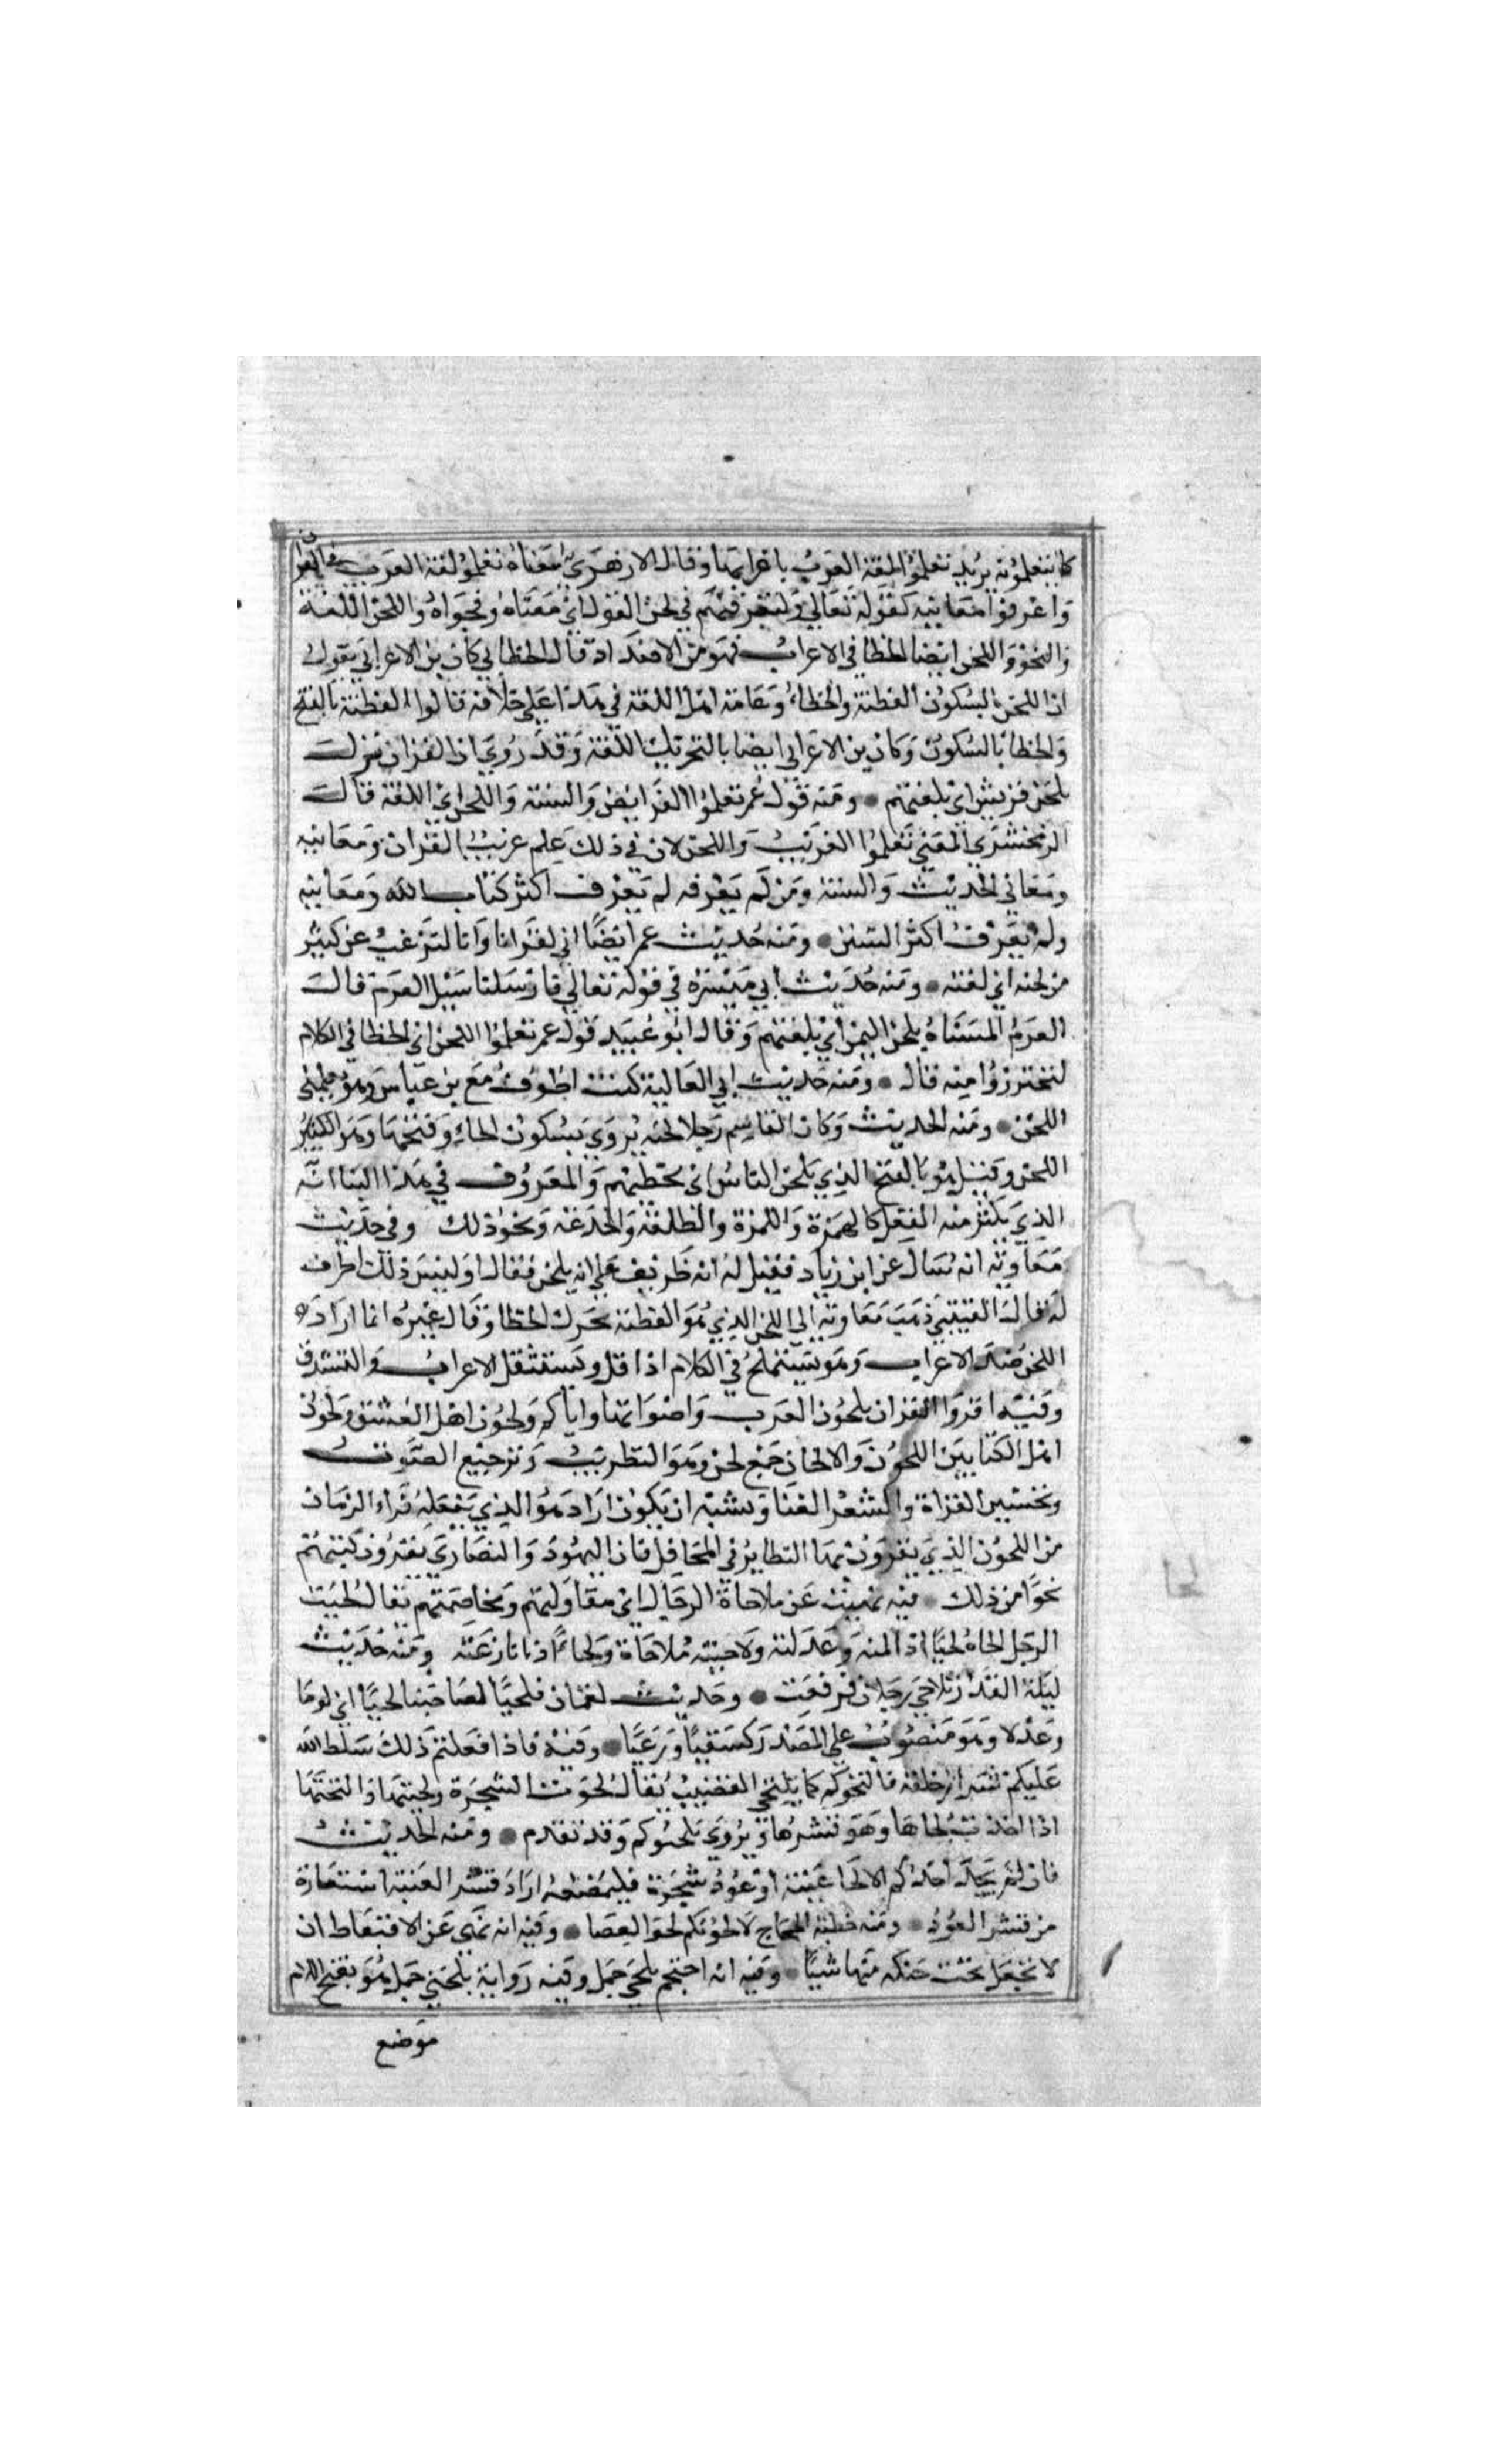 كما تتعلمونه يريد تعلموا لغة العرب باعرابها وقال الازهري معناه تعلموا لغة العرب في القران
واعرفوا معانيه كقوله تعالي ولتعرفنهم في لحن القول اي معناه وفحواه واللحن اللغة
والنحو واللحن ايضا الخطا في الاعراب فهو من الاضداد قال الخطابي كان بن الاعرابي يقول
ان اللحن بالسكون الفطنة والخطاء وعامة اهل اللغة في هذا علي خلافه قالوا الفطنة بالفتح
والخطا بالسكون وكان بن الاعرابي ايضا بالتحريك اللغة وقد روي ان القران نزل
بلحن قريش اي بلغتهم ومنه قول عمر تعلموا الفرايض والسنة واللحن اي اللغة قال
الزمخشري المعني تعلموا الغريب واللحن لان في ذلك علم غريب القران ومعانيه
ومعاني الحديث والسنة ومن لم يعرفه لم يعرف اكثر كتاب الله ومعانيه
ولم يعرف اكثر السنن ومنه حديث عمر ايضا ابي اقرانا وانا لنرغب عن كثير
من لحنه اي لغته ومنه حديث ابي ميسرة في قوله تعالي فارسلنا سيل العرم قال
العرم المسناة بلحن اليمن اي بلغتهم وقال ابو عبيد قول عمر تعلموا اللحن اي الخطا في الكلام
لتحترزوا منه قال ومنه حديث ابي العالية كنت اطوف مع بن عباس وهو يعلمني
اللحن ومنه الحديث وكان القاسم رجلا لحنه يروي بسكون الحاء وفتحها وهو الكثير
اللحن وقيل هو بالفتح الذي يلحن الناس اي يخطيهم والمعروف في هذا البنا انه
الذي يكثر منه الفعل كالهمزة واللمزة والطلقة والخدعة ونحو ذلك وفي حديث
معاوية انه سال عن ابن زياد فقيل له انه ظريف علي انه يلحن فقال اوليس ذلك اظرف
له قال القتيبي ذهب معاوية الي اللحن الذي هو الفطنة محرك الخطا وقال غيره انما اراد
اللحن ضد الاعراب وهو يستملح في الكلام اذا قل ويستثقل الاعراب والتشدق
وفيه اقروا القران بلحون العرب واصواتها واياكم ولحون اهل العشق ولحون
اهل الكتابين اللحون والالحان جمع لحن وهو التطريب وترجيع الصوت
وتحسين القراة والشعر الغنا ويشبه ان يكون اراد هو الذي يفعله قراء الزمان
من اللحون الذي يقرون بها النظاير في المحافل فان اليهود والنصاري يقرون كتبهم
نحوا من ذلك فيه نهيت عن ملاحاة الرجال اي مقاولتهم ومخاصمتهم يقال لحيت
الرجل الحاه لحيا اذا لمته وعدلته ولاحيته ملاحاة ولحاء اذا نازعته ومنه حديث
ليلة القدر تلاحي رجلان فرفعت وحديث لقمان فلحيا لصاحبنا لحيا اي لوما
وعدلا وهو منصوب علي المصدر كسقيا ورعيا وفيه فاذا فعلتم ذلك سلط الله
عليكم شرار خلقه فالتحوكم كما يلتحي القضيب يقال لحوت الشجرة ولحيتها والتحتها
اذا اخذت لحاها وهو قشرها ويروي يلحتوكم وقد تقدم ومنه الحديث
فان لم يجد احدكم الا لحا عنبة او عود شجرة فليمضغه اراد قشر العنبة استعارة
من قشر العود ومنه خطبة الحجاج لالحونكم لحو العصا وفيه انه نهي عن الاقتعاط ان
لا تجعل تحت حنكه منها شيا وفيه انه احتجم بلحي جمل وفيه رواية بلحيي جمل هو بفتح اللام
موضع
لحا